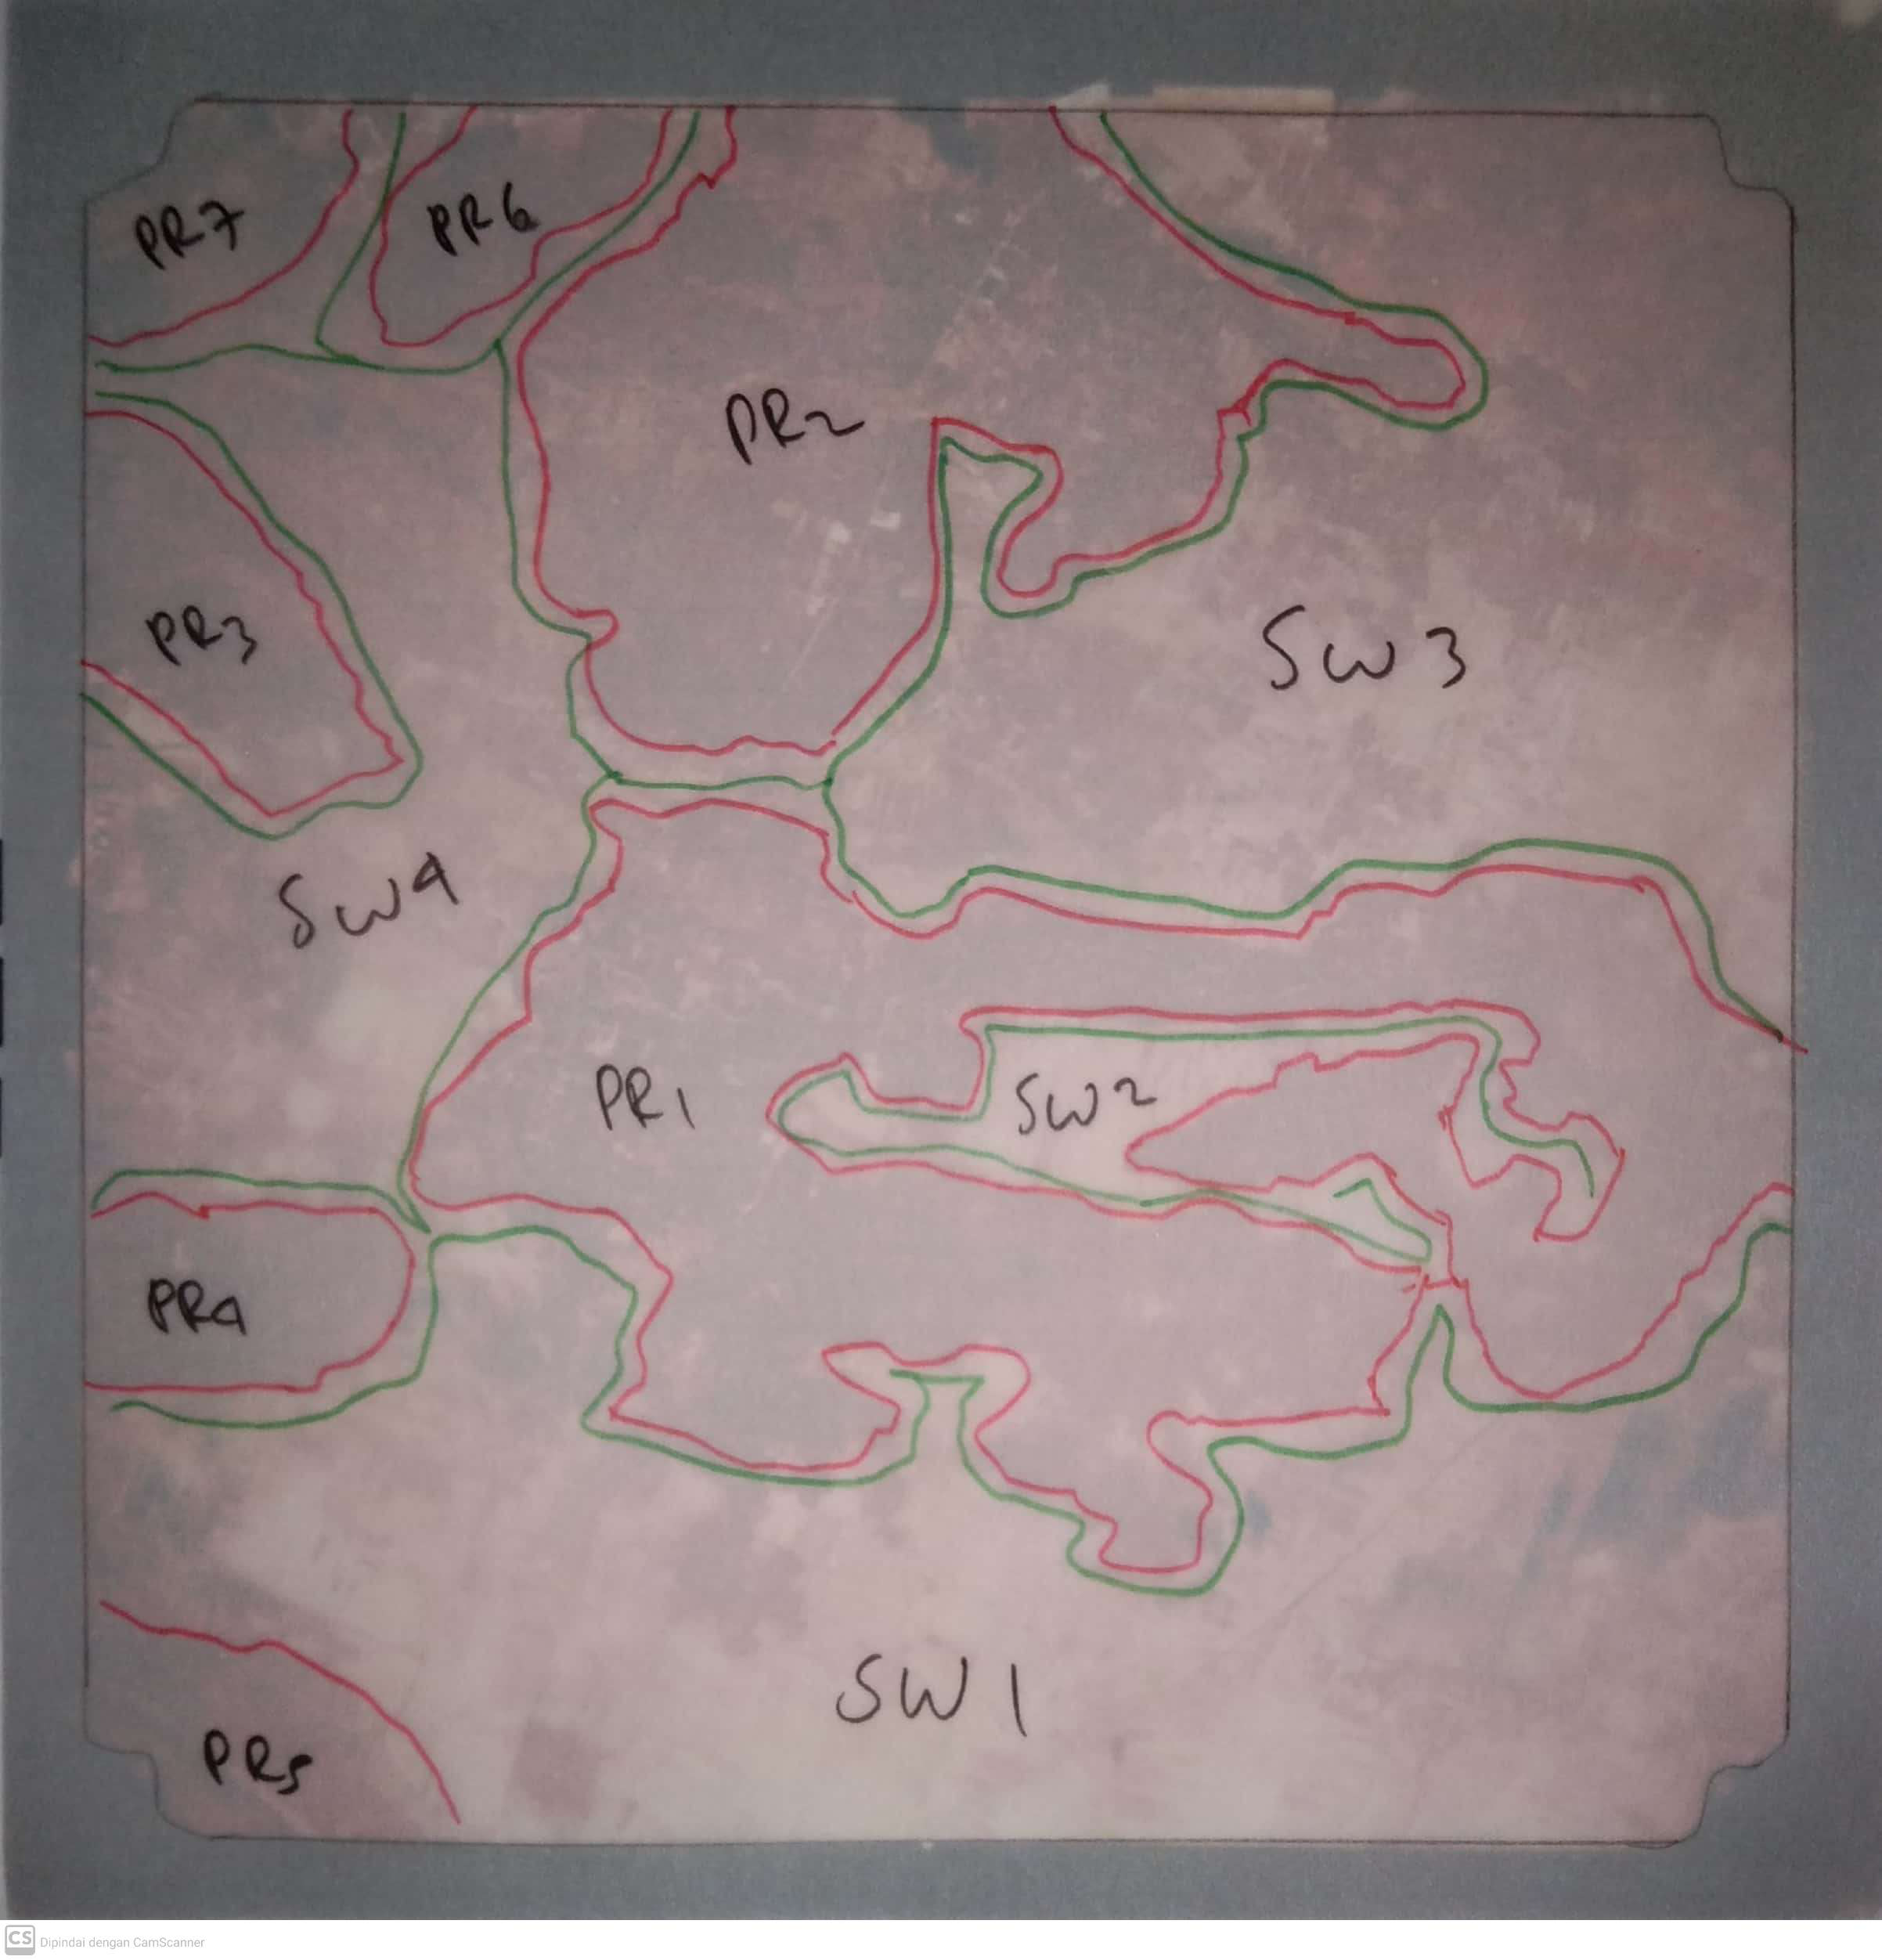 PR7
PR6
PR2
PR3
SW3
SW4
PR1
SW2
PR4
SW1
PR5
CS Dipindai dengan CamScanner